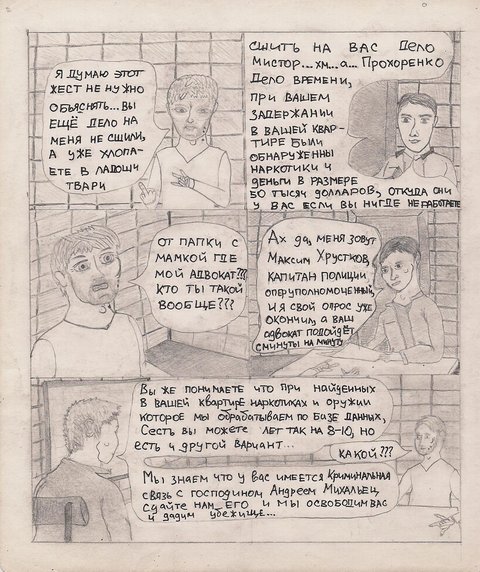 Я ДУМАЮ ЭТОТ
ЖЕСТ НЕ НУЖНО
ОБЪЯСНЯТЬ...ВЫ
ЕЩЁ ДЕЛО НА
МЕНЯ НЕ СШИЛИ,
А УЖЕ ХЛОПА-
ЕТЕ В ЛАДОШИ
ТВАРИ
СШИТЬ НА ВАС ДЕЛО
МИСТОР...ХМ...А... ПРОХОРЕНКО
ДЕЛО ВРЕМЕНИ,
ПРИ ВАШЕМ
ЗАДЕРЖАНИИ
В ВАШЕЙ КВАР-
ТИРЕ БЫЛИ
ОБНАРУЖЕННЫ
НАРКОТИКИ И
ДЕНЬГИ В РАЗМЕРЕ
50 ТЫСЯЧ ДОЛЛАРОВ, ОТКУДА ОНИ
У ВАС ЕСЛИ ВЫ НИГДЕ НЕ РАБОТАЕТЕ
ОТ ПАПКИ С
МАМКОЙ ГДЕ
МОЙ АДВОКАТ!!!
КТО ТЫ ТАКОЙ
ВООБЩЕ???
АХ ДА, МЕНЯ ЗОВУТ
МАКСИМ ХРУСТКОВ,
КАПИТАН ПОЛИЦИИ
ОПЕРУПОЛНОМОЧЕННЫЙ,
И Я СВОЙ ОПРОС УЖЕ
ОКОНЧИЛ, А ВАШ
АДВОКАТ ПОДОЙДЁТ
С МИНУТЫ НА МИНУТУ
ВЫ ЖЕ ПОНИМАЕТЕ ЧТО ПРИ НАЙДЕННЫХ
В ВАШЕЙ КВАРТИРЕ НАРКОТИКАХ И ОРУЖИИ
КОТОРОЕ МЫ ОБРАБАТЫВАЕМ ПО БАЗЕ ДАННЫХ,
СЕСТЬ ВЫ МОЖЕТЕ ЛЕТ ТАК НА 8-10, НО
ЕСТЬ И ДРУГОЙ ВАРИАНТ...
КАКОЙ???
МЫ ЗНАЕМ ЧТО У ВАС ИМЕЕТСЯ КРИМИНАЛЬНАЯ
СВЯЗЬ С ГОСПОДИНОМ АНДРЕЕМ МИХАЛЬЕЦ,
СДАЙТЕ НАМ ЕГО И МЫ ОСВОБОДИМ ВАС
И ДАДИМ УБЕЖИЩЕ...